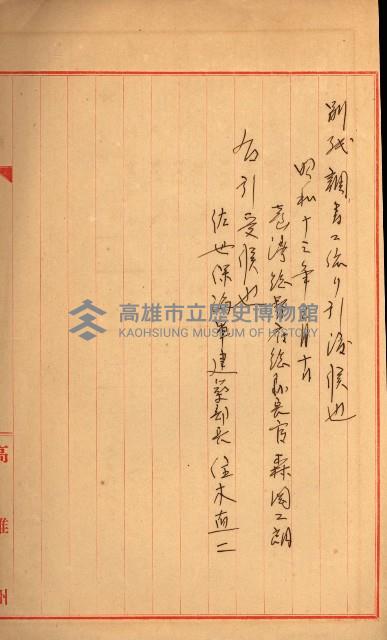 別紙調書ニ依リ引渡候也
昭和十三年 月 日
臺灣總督府總務長官 森岡二朗
右引受候也
佐世保海軍建築部長 住木直二
高雄州
高雄市立歷史博物館
KAOHSIUNG MUSEUM OF HISTORY